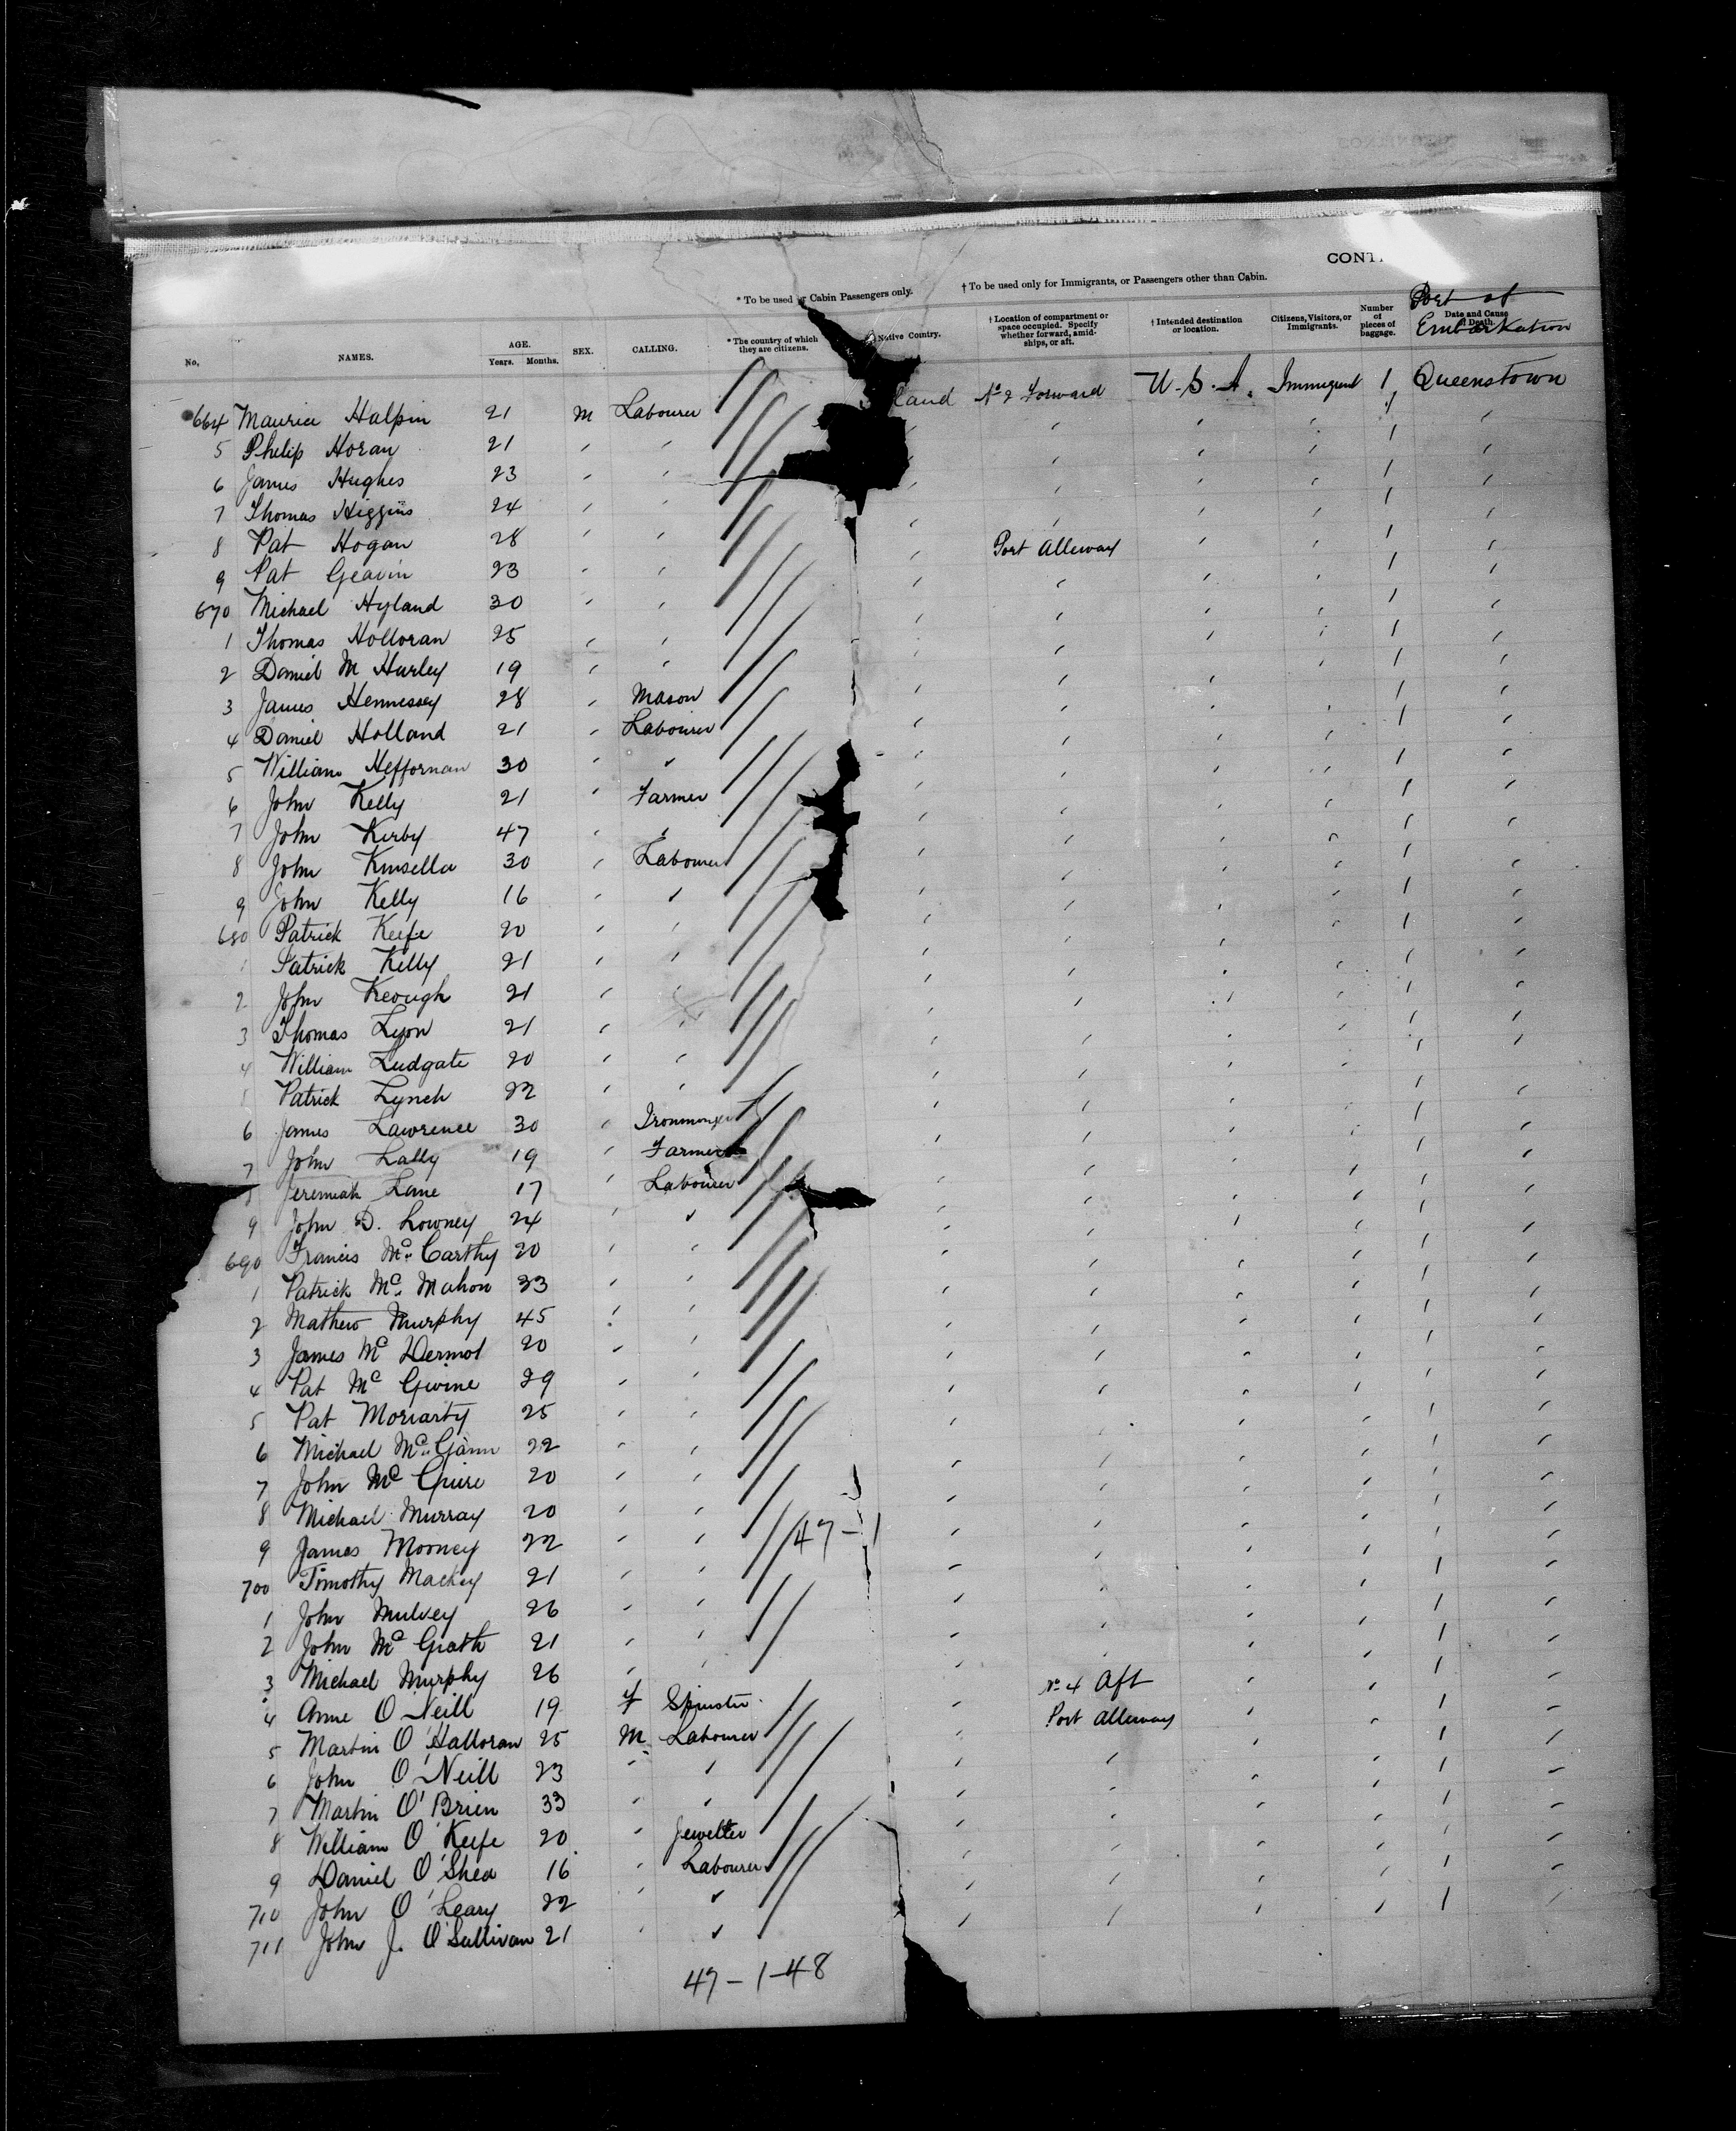 CONT
* To be used for Cabin Passengers only. † To be used only for Immigrants, or Passengers other than Cabin.
No. NAMES. AGE. Years. Months. SEX. CALLING. * The country of which they are citizens. Native Country. † Location of compartment or space occupied. Specify whether forward, amidships, or aft. † Intended destination or location. Citizens, Visitors, or Immigrants. Number of pieces of baggage. Date and Cause of Death. Port of Embarkation
664 Maurice Halpin 21 M Labourer land No 2 Forward U.S.A. Immigrant 1 Queenstown
5 Philip Horan 21 " " 1
6 James Hughes 23 " " 1
7 Thomas Higgins 24 " " 1
8 Pat Hogan 28 " " 1
9 Pat Geavin 23 " " Port Alleway 1
670 Michael Hyland 30 " " 1
1 Thomas Holloran 25 " " 1
2 Daniel M Hurley 19 " " 1
3 James Hennessey 28 " Mason 1
4 Daniel Holland 21 " Labourer 1
5 William Heffornan 30 " " 1
6 John Kelly 21 " Farmer 1
7 John Kirby 47 " " 1
8 John Kinsella 30 " Labourer 1
9 John Kelly 16 " " 1
680 Patrick Keefe 20 " " 1
1 Patrick Kelly 21 " " 1
2 John Keough 21 " " 1
3 Thomas Lyon 21 " " 1
4 William Ludgate 20 " " 1
Patrick Lynch 22 " " 1
6 James Lawrence 30 " Ironmonger 1
7 John Lally 19 " Farmer 1
8 Jeremiah Lane 17 " Labourer 1
9 John D. Lowney 24 " " 1
690 Francis Mc Carthy 20 " " 1
1 Patrick Mc Mahon 23 " " 1
2 Mathew Murphy 45 " " 1
3 James Mc Dermot 20 " " 1
4 Pat Mc Givine 29 " " 1
5 Pat Moriarty 25 " " 1
6 Michael Mc Gann 22 " " 1
7 John Mc Guire 20 " " 1
8 Michael Murray 20 " " 1
9 James Mooney 22 " " 47-1 1
700 Timothy Mackey 21 " " 1
1 John Mulvey 26 " " 1
2 John Mc Grath 21 " " 1
3 Michael Murphy 26 " " 1
4 Anne O'Neill 19 F Spinster No 4 Aft 1
5 Martin O'Halloran 25 M Labourer Port Alleway 1
6 John O'Neill 23 " " 1
7 Martin O'Brien 33 " " 1
8 William O'Keefe 20 " Jeweller 1
9 Daniel O'Shea 16 " Labourer 1
710 John O'Leary 22 " " 1
711 John J. O'Sullivan 21 " " 1
47-1-48